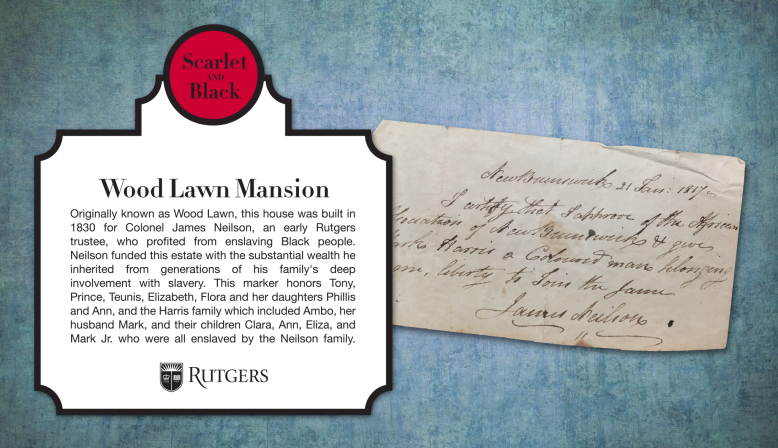 Scarlet
AND
Black
Wood Lawn Mansion
Originally known as Wood Lawn, this house was built in
1830 for Colonel James Neilson, an early Rutgers
trustee, who profited from enslaving Black people.
Neilson funded this estate with the substantial wealth he
inherited from generations of his family's deep
involvement with slavery. This marker honors Tony,
Prince, Teunis, Elizabeth, Flora and her daughters Phillis
and Ann, and the Harris family which included Ambo, her
husband Mark, and their children Clara, Ann, Eliza, and
Mark Jr. who were all enslaved by the Neilson family.
RUTGERS
New Brunswick 21 Jan: 1817
I certify that I approve of the African
of New Brunswick & give
Harris a Coloured man belonging
liberty to Join the same
James Neilson